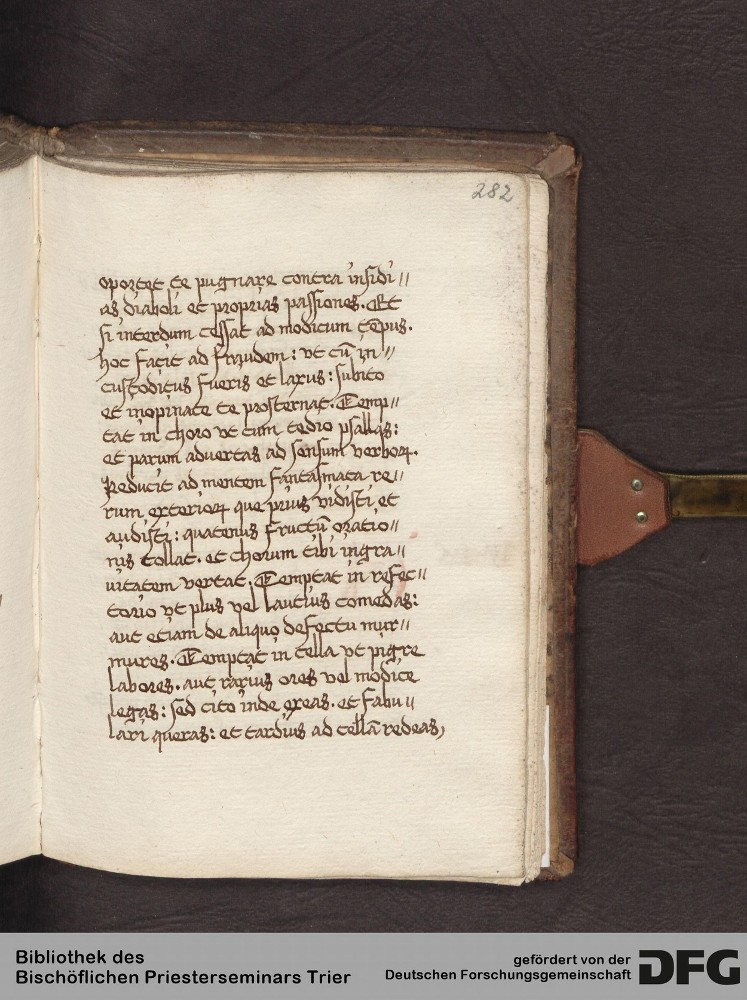 282
oportet te pugnare contra insidi//
as diaboli et proprias passiones. Et
si interdum cessat ad modicum tēpus.
hoc facit ad fraudem: vt cū in//
custoditus fueris et laxus: subito
et inopinate te prosternat. Temp//
tat in choro vt cum tedio psallas:
et parum aduertas ad sensum verboꝝ.
Reducit ad mentem fantasmata re//
rum exterioꝝ que prius vidisti et
audisti: quatenus fructū oratio//
nis tollat. et chorum tibi in gra//
uitatem vertat. Temptat in refec//
torio vt plus vel lautius comedas:
aut etiam de aliquo defectu mur//
mures. Temptat in cella vt pigre
labores. aut rarius ores vel modice
legas: sed cito inde exeas. et fabu//
lari queras: et tardius ad cellā redeas,
Bibliothek des
Bischöflichen Priesterseminars Trier
gefördert von der
Deutschen Forschungsgemeinschaft
DFG